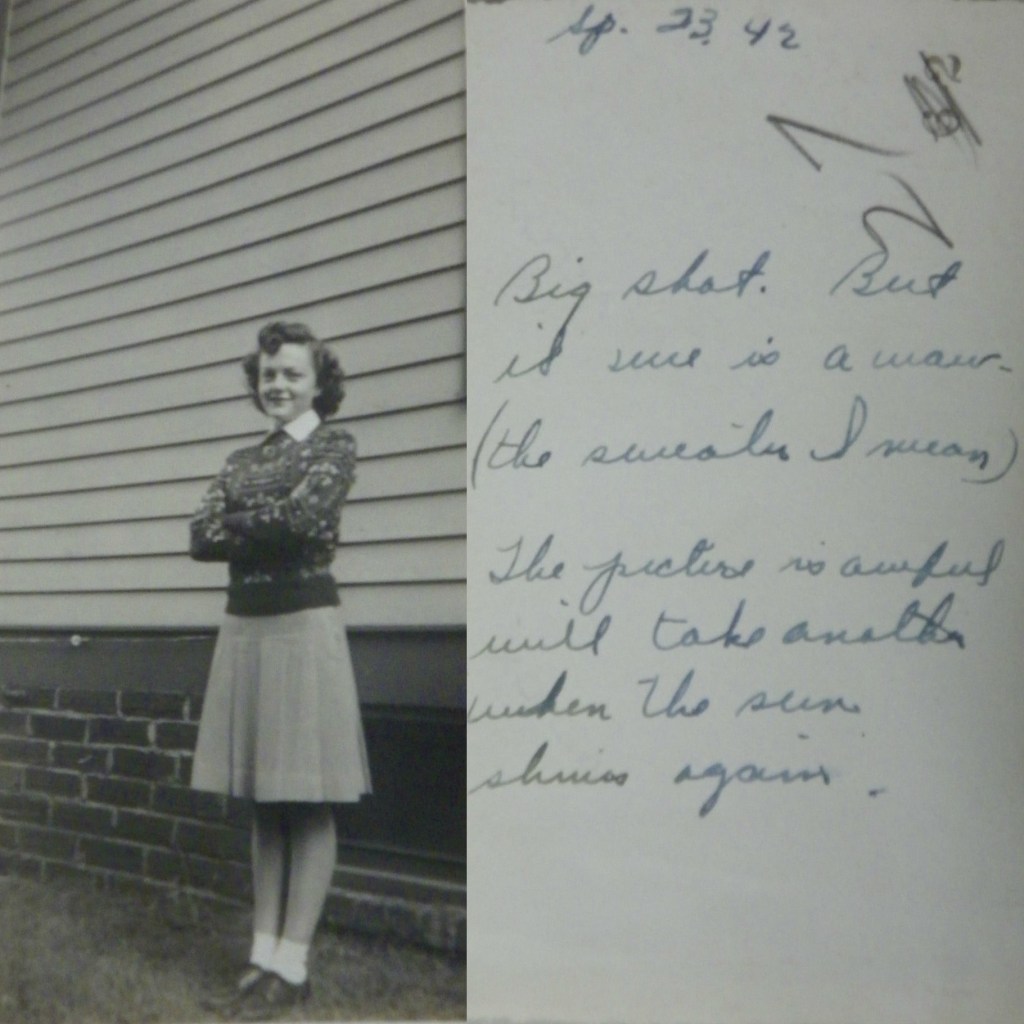 Sp. 23, 42
Big shot. But
it sure is a wow-
(the sweater I mean)
The picture is awful
will take another
when the sun
shines again.